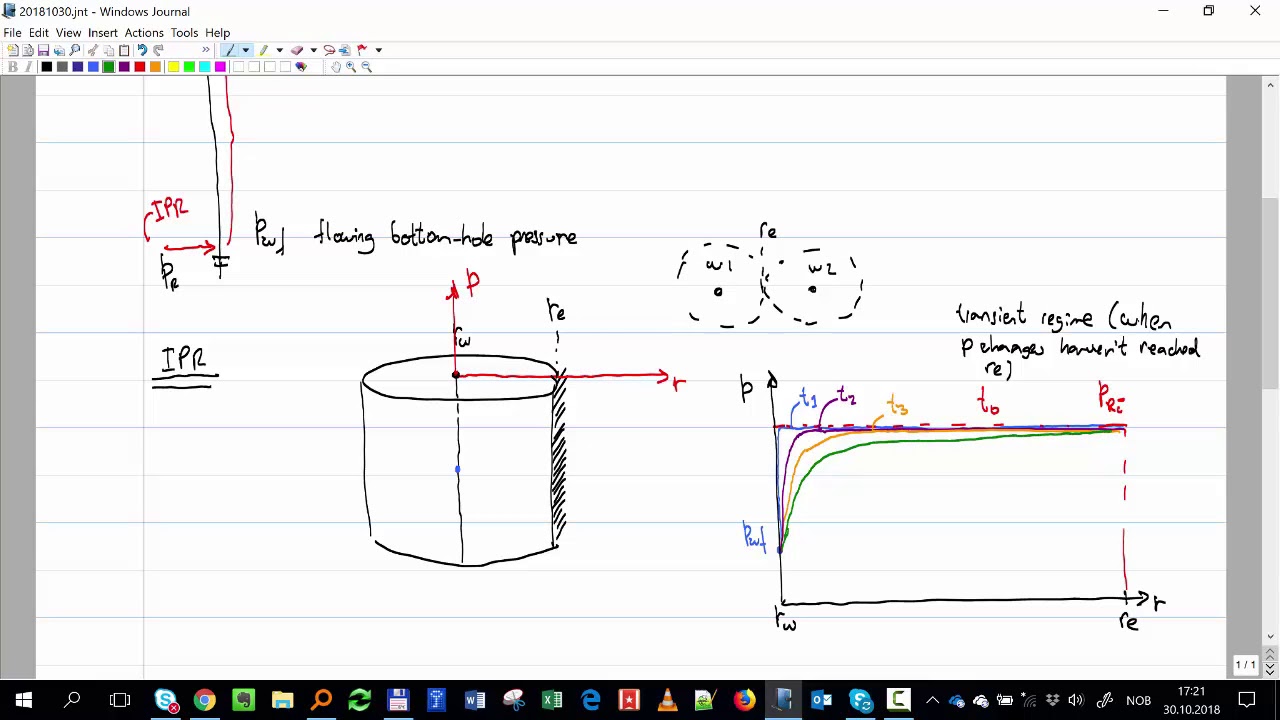 20181030.jnt - Windows Journal
File Edit View Insert Actions Tools Help
IPR
PR
Pwf flowing bottom-hole pressure
re
w1
w2
P
re
rw
r
IPR
transient regime (when
p changes haven't reached
re)
p
t1
t2
t3
t0
PRi
Pwf
rw
re
r
1 / 1
NOB
17:21
30.10.2018